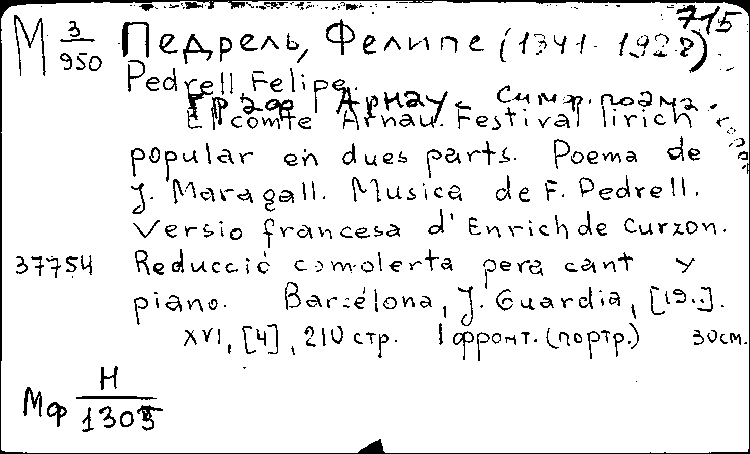 715
М 3/950 Педрель, Фелипе (1341-1928)
Pedrell, Felipe.
Граф Арнау. Симф. поэма.
El comte Arnau. Festival lirich
popular en dues parts. Poema de
J. Maragall. Musica de F. Pedrell.
Versio francesa d'Enrich de Curzon.
37754 Reducció comolerta pera cant y
piano. Barcélona, J. Guardia, [19..].
XVI, [4], 210 стр. 1 фронт. (портр.) 30см.
Мф Н/1305